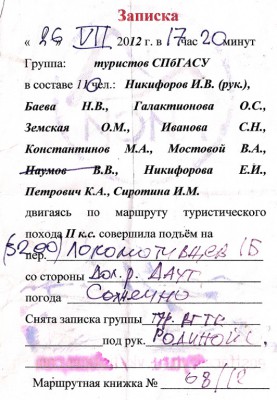 Записка
« 26 VII 2012 г. в 17 час 20 минут
Группа: туристов СПбГАСУ
в составе 110 чел.: Никифоров И.В. (рук.),
Баева Н.В., Галактионова О.С.,
Земская О.М., Иванова С.Н.,
Константинов М.А., Мостовой В.А.,
Наумов В.В., Никифорова Е.И.,
Петрович К.А., Сиротина И.М.
двигаясь по маршруту туристического
похода II к.с. совершила подъём на
пер. (3200) Локомотивцев 1Б
со стороны дол. р. Даут
погода Солнечно
Снята записка группы тур.
под рук. Родиной
Маршрутная книжка № 68/